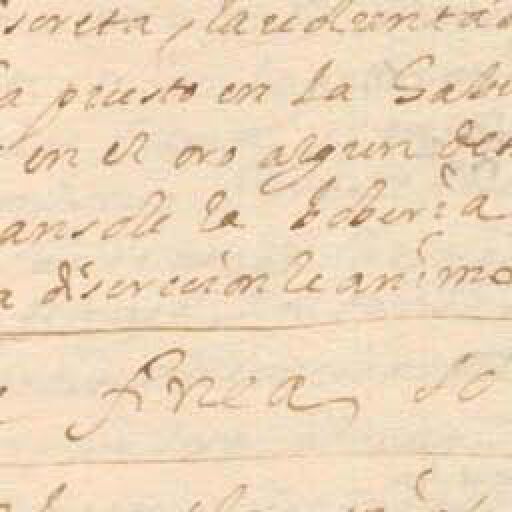 iscreta, la voluntad
a puesto en la Sabi
en el oro algun de
ansole la boberia
a discrecion le animo
finea, so